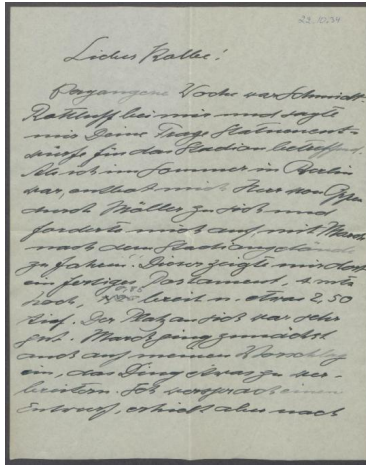 23.10.34
Lieber Kolbe!
Vergangene Woche war Schmidt-
Rottluff bei mir und sagte
mir Deine Frage Statuenent-
würfe für das Stadion betreffend.
Als ich im Sommer in Berlin
war, entbot mich Herr von
durch Möller zu sich und
forderte mich auf, mit March
nach dem Stadiongelände
zu fahren. Dieser zeigte mir dort
ein fertiges Postament,
hoch, breit u. etwa 2,50
tief. Der Platz an sich war sehr
gut. March ging zunächst
auch auf meinen Vorschlag
ein, das Ding etwas zu ver-
breitern. Ich versprach einen
Entwurf, erhielt aber nach